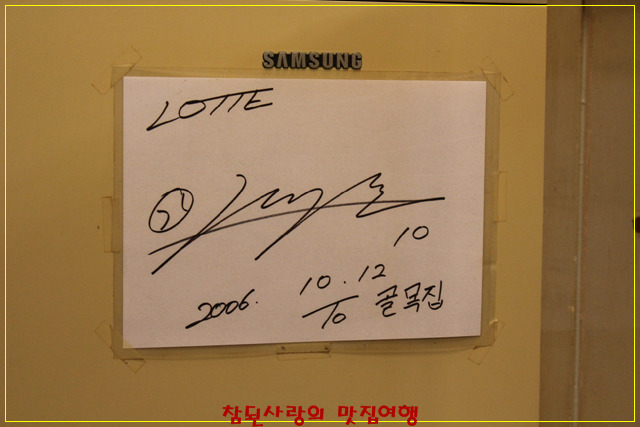 SAMSUNG
LOTTE
10
2006. 10.12
To 골목집
참된사랑의 맛집여행